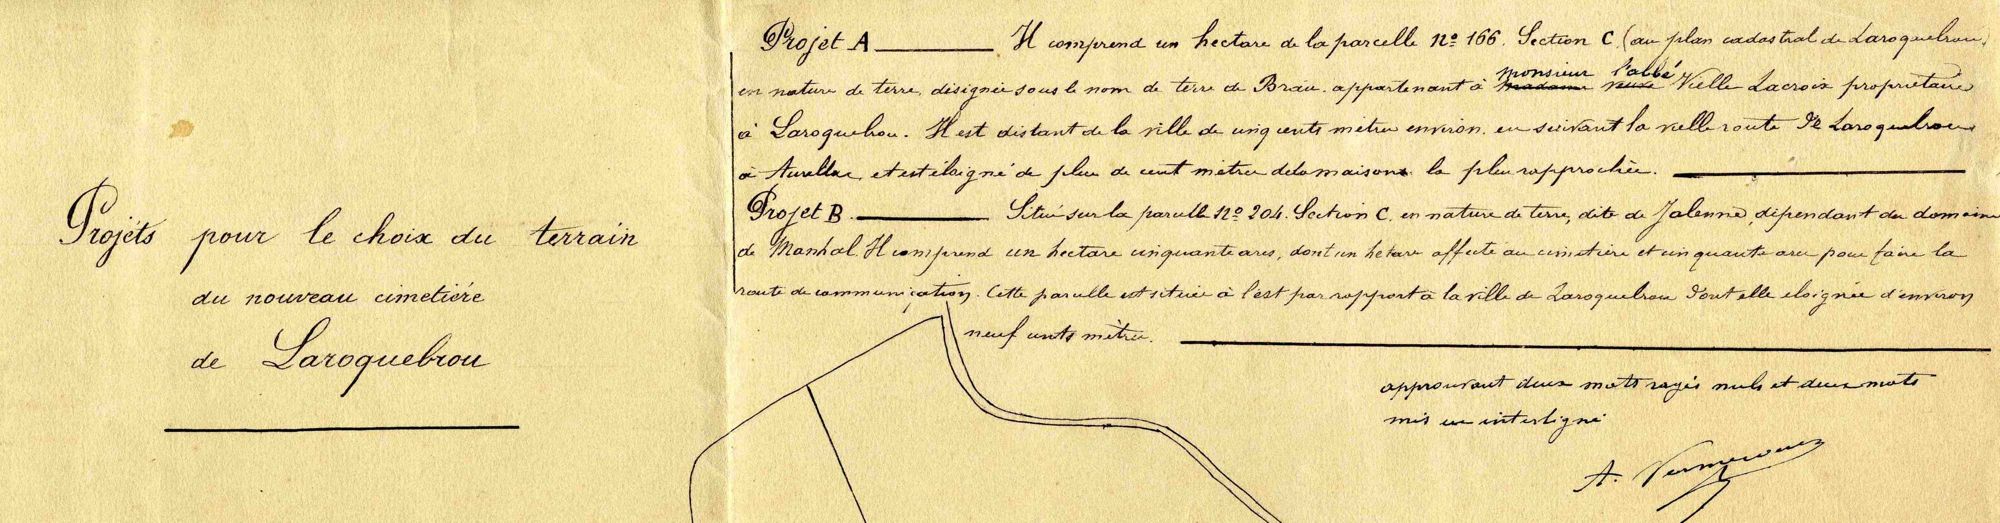 Projèts pour le choix du terrain
du nouveau cimetière
de Laroquebrou
Projet A Il comprend un hectare de la parcelle nº 166. Section C. (au plan cadastral de Laroquebrou)
en nature de terre, désignée sous le nom de terre de Brau. appartenant à madame veuve monsieur l'abbé Vielle Lacroix propriétaire
à Laroquebrou. Il est distant de la ville de cinq cents mètres environ. en suivant la vielle route de Laroquebrou
à Aurillac, et est éloigné de plus de cent mètres de la maison la plus rapprochée.
Projet B. Situé sur la parcelle nº 204. Section C. en nature de terre, dite de Jalenne, dépendant du domaine
de Manhal. Il comprend un hectare cinquante ares, dont un hetare affecté au cimetière et cinquante ares pour faire la
route de communication. Cette parcelle est située à l'est par rapport à la ville de Laroquebrou dont elle éloignée d'environ
neuf cents mètres.
approuvant deux mots rayés nuls et deux mots
mis en interligne
A. Vermenouze